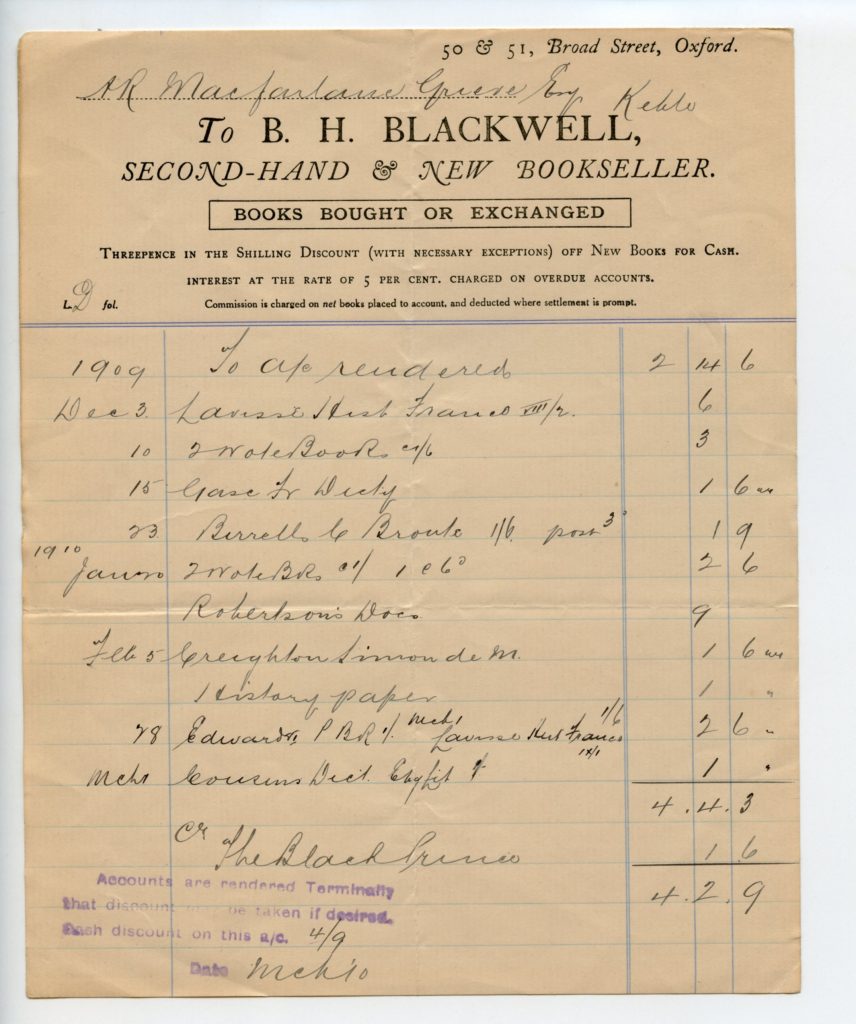 50 & 51, Broad Street, Oxford.
AR Macfarlane Grieve Esq Keble
To B. H. BLACKWELL,
SECOND-HAND & NEW BOOKSELLER.
BOOKS BOUGHT OR EXCHANGED
THREEPENCE IN THE SHILLING DISCOUNT (WITH NECESSARY EXCEPTIONS) OFF NEW BOOKS FOR CASH.
INTEREST AT THE RATE OF 5 PER CENT. CHARGED ON OVERDUE ACCOUNTS.
L. D fol. Commission is charged on net books placed to account, and deducted where settlement is prompt.
1909 To a/c rendered 2 14 6
Dec 3. Lavisse Hist France VIII/2. 6
10 2 NoteBooks c1/6 3
15 Gasc Fr Dicty 1 6
23 Birrells C Bronte 1/6. post 3d 1 9
1910
Jan 20 2 NoteBks c1/ 1 c 6d 2 6
Robertson's Docs 9
Feb 5 Creighton Simon de M. 1 6
History paper 1 "
28 Edwards P B R 1/. Mch 1 Lavisse Hist France IX/1 1/6 2 6 "
Mch 1 Cousins Dict. 1 "
4 . 4 . 3
Cr The Black Prince 1 6
4 . 2 . 9
Accounts are rendered Terminally
that discount may be taken if desired.
Cash discount on this a/c. 4/9
Date Mch 10